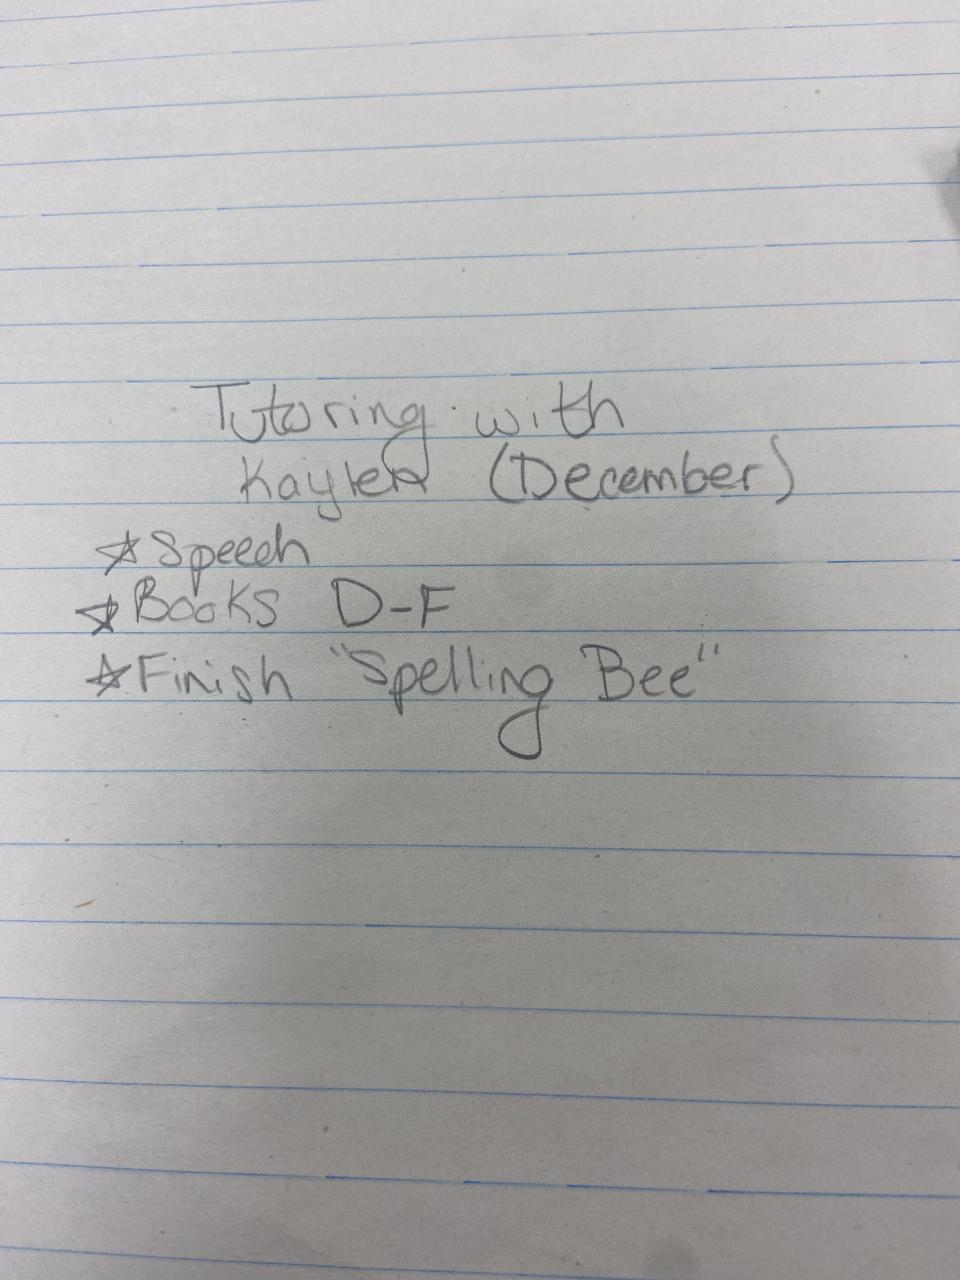 Tutoring with
Kaylea (December)
☆ Speech
☆ Books D-F
☆ Finish "Spelling Bee"